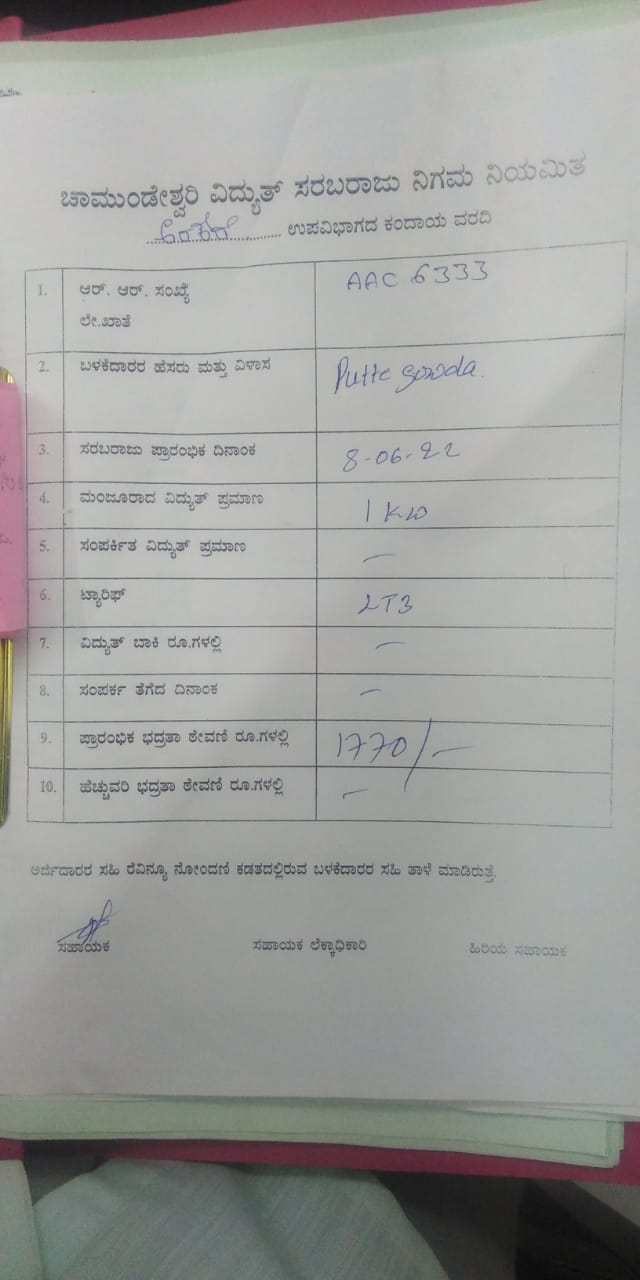 ಚಾಮುಂಡೇಶ್ವರಿ ವಿದ್ಯುತ್ ಸರಬರಾಜು ನಿಗಮ ನಿಯಮಿತ
ಉಪವಿಭಾಗದ ಕಂದಾಯ ವರದಿ
1. ಆರ್. ಆರ್. ಸಂಖ್ಯೆ AAC 6333
ಲೇ.ಖಾತೆ
2. ಬಳಕೆದಾರರ ಹೆಸರು ಮತ್ತು ವಿಳಾಸ Putte Gowda.
3. ಸರಬರಾಜು ಪ್ರಾರಂಭಿಕ ದಿನಾಂಕ 8-06-22
4. ಮಂಜೂರಾದ ವಿದ್ಯುತ್ ಪ್ರಮಾಣ 1 KW
5. ಸಂಪರ್ಕಿತ ವಿದ್ಯುತ್ ಪ್ರಮಾಣ —
6. ಟ್ಯಾರಿಫ್ LT3
7. ವಿದ್ಯುತ್ ಬಾಕಿ ರೂ.ಗಳಲ್ಲಿ —
8. ಸಂಪರ್ಕ ತೆಗೆದ ದಿನಾಂಕ —
9. ಪ್ರಾರಂಭಿಕ ಭದ್ರತಾ ಠೇವಣಿ ರೂ.ಗಳಲ್ಲಿ 1770/—
10. ಹೆಚ್ಚುವರಿ ಭದ್ರತಾ ಠೇವಣಿ ರೂ.ಗಳಲ್ಲಿ —
ಅರ್ಜಿದಾರರ ಸಹಿ ರೆವಿನ್ಯೂ ನೋಂದಣಿ ಕಡತದಲ್ಲಿರುವ ಬಳಕೆದಾರರ ಸಹಿ ತಾಳೆ ಮಾಡಿರುತ್ತೆ.
ಸಹಾಯಕ ಸಹಾಯಕ ಲೆಕ್ಕಾಧಿಕಾರಿ ಹಿರಿಯ ಸಹಾಯಕ